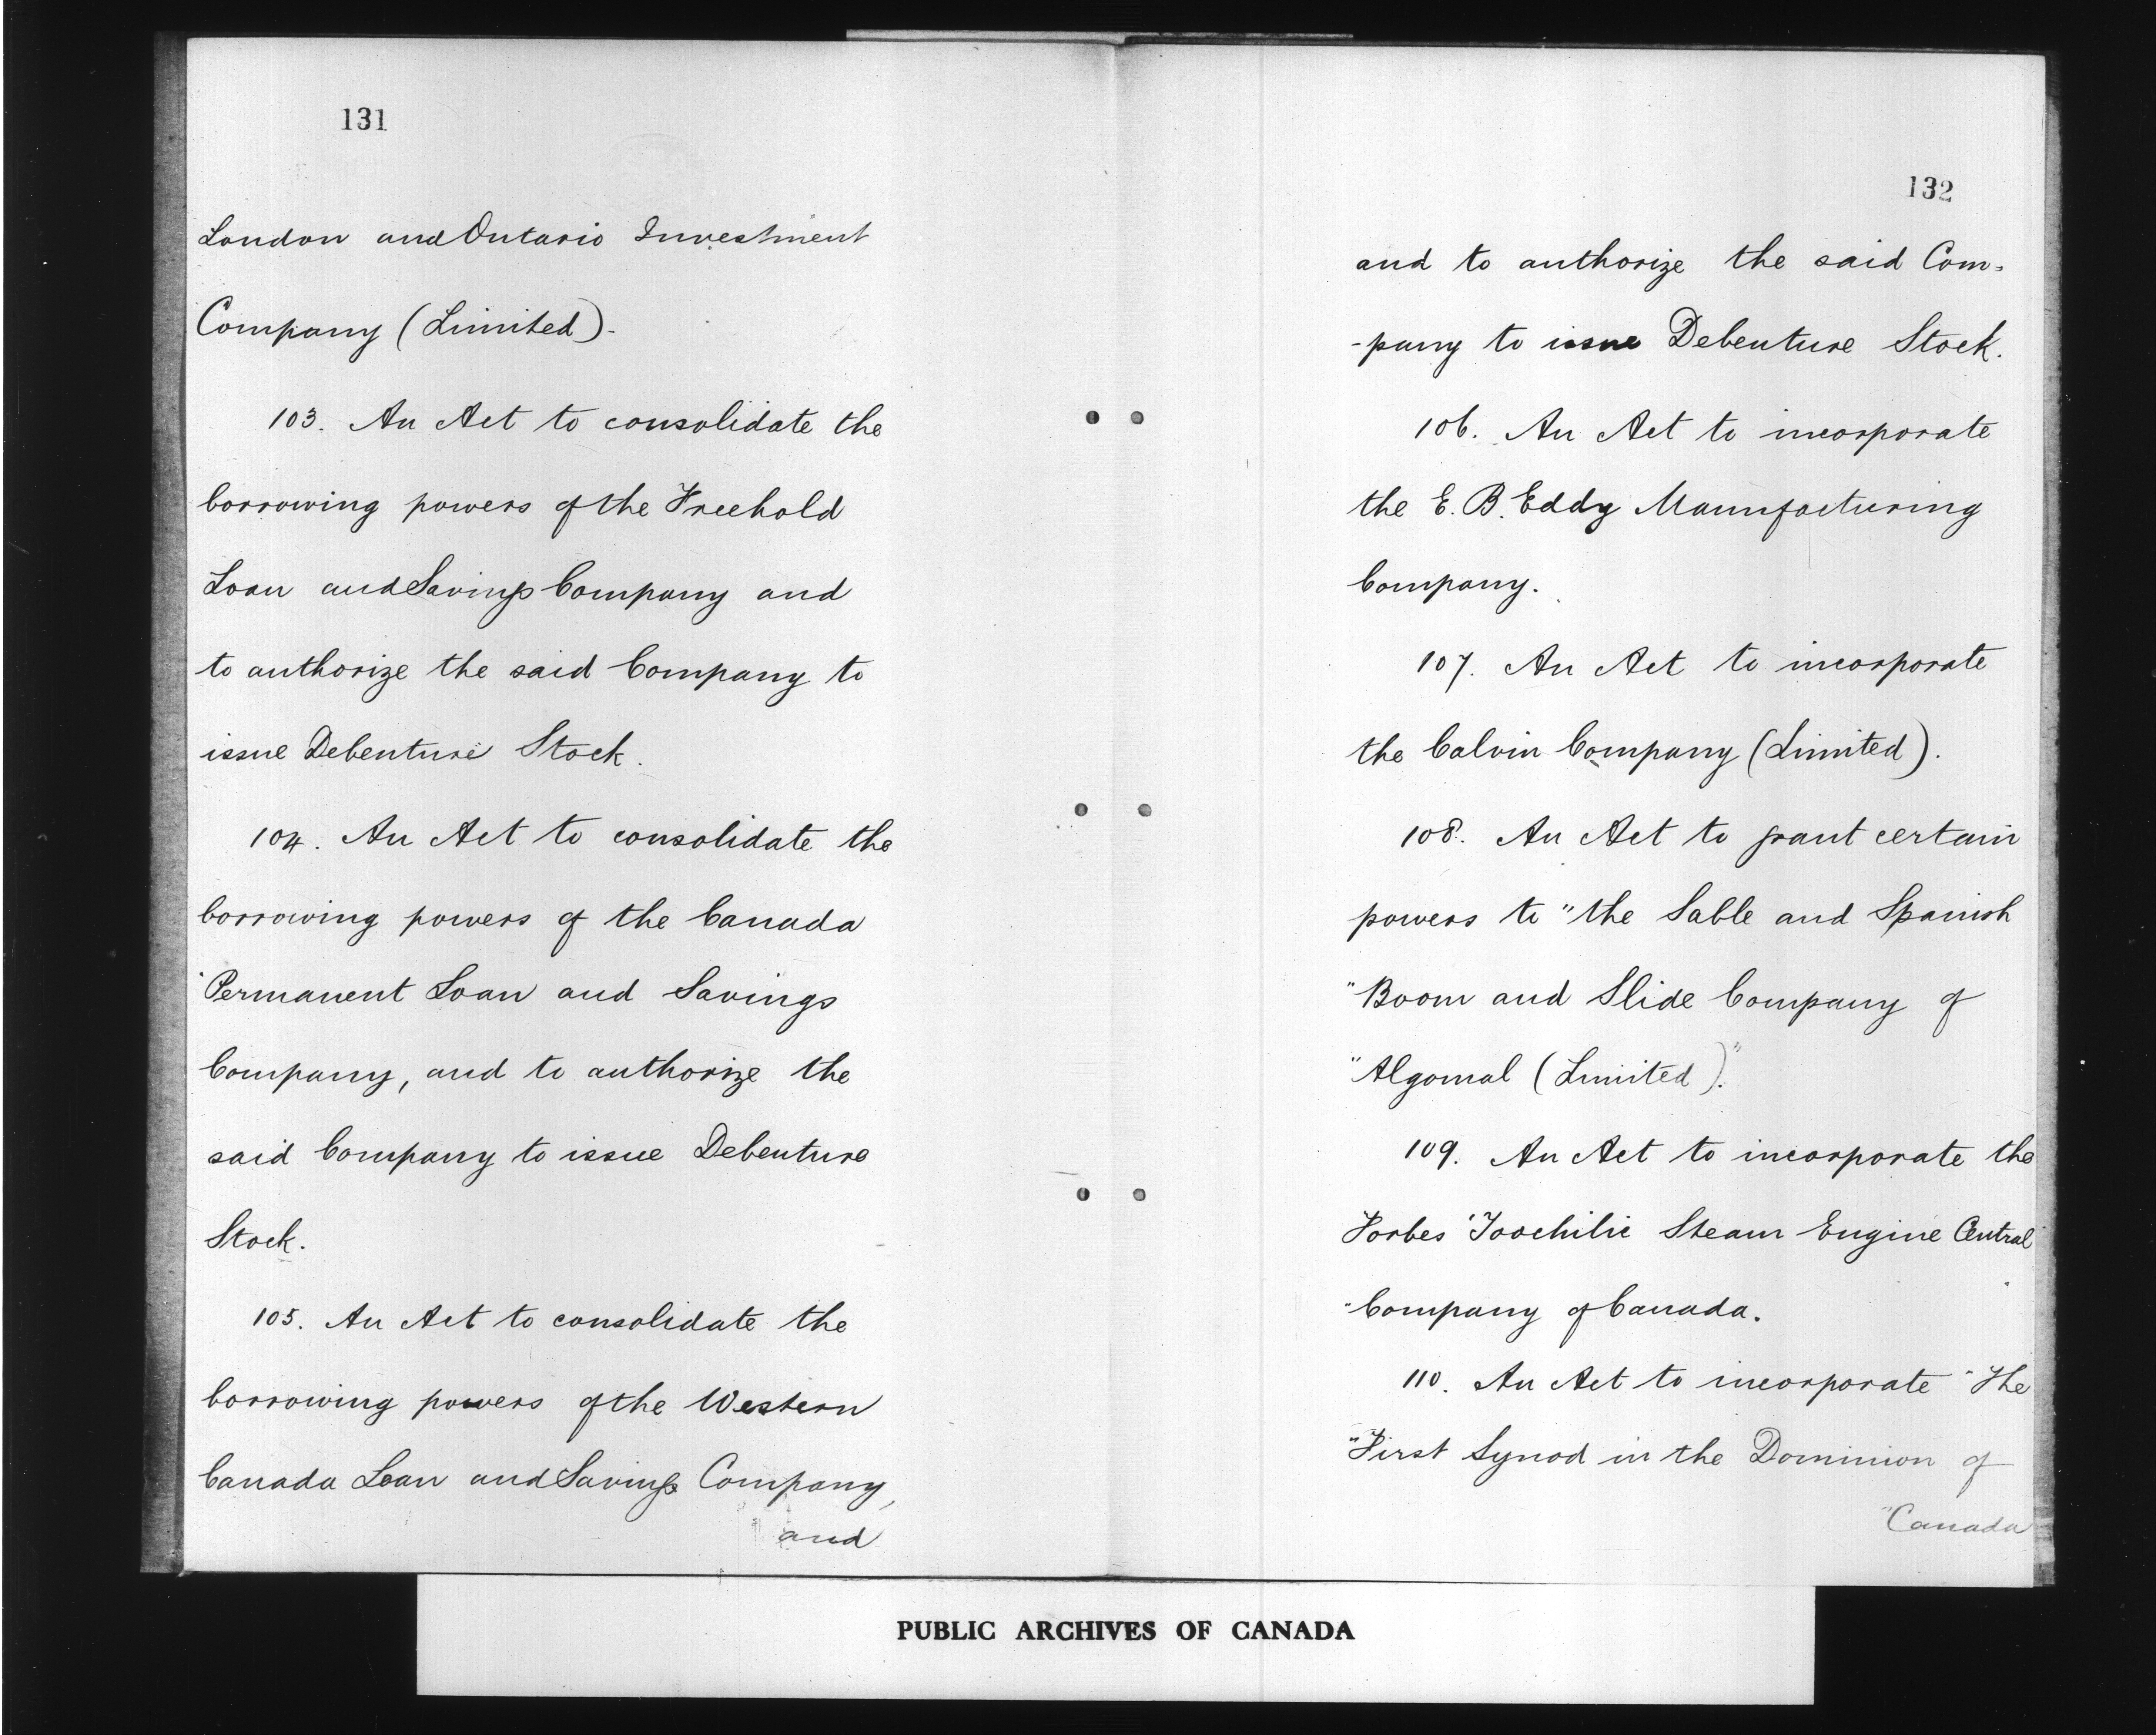 131
London and Ontario Investment
Company (Limited)-
103. An Act to consolidate the
borrowing powers of the Freehold
Loan and Savings Company and
to authorize the said Company to
issue Debenture Stock.
104. An Act to consolidate the
borrowing powers of the Canada
Permanent Loan and Savings
Company, and to authorize the
said Company to issue Debenture
Stock.
105. An Act to consolidate the
borrowing powers of the Western
Canada Loan and Savings Company,
and
132
and to authorize the said Com-
-pany to issue Debenture Stock.
106. An Act to incorporate
the E. B. Eddy Manufacturing
Company.
107. An Act to incorporate
the Calvin Company (Limited).
108. An Act to grant certain
powers to "the Sable and Spanish
"Boom and Slide Company of
"Algomal (Limited)."
109. An Act to incorporate the
Forbes Trochilic Steam Engine Central
Company of Canada.
110. An Act to incorporate "The
"First Synod in the Dominion of
"Canada
PUBLIC ARCHIVES OF CANADA